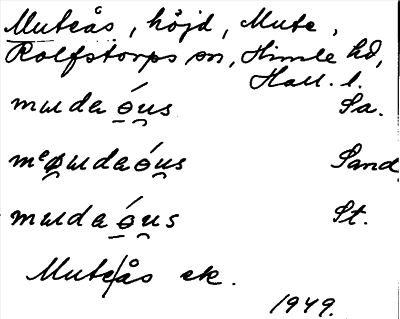 Muteås, höjd, Mute,
Rolfstorps sn, Himle hd,
Hall. l.
mɯda ó̱us Sa.
mᵉø̯ɯdaó̱us Sand
mɯdaó̱us St.
Mute/ås ek.
1949.